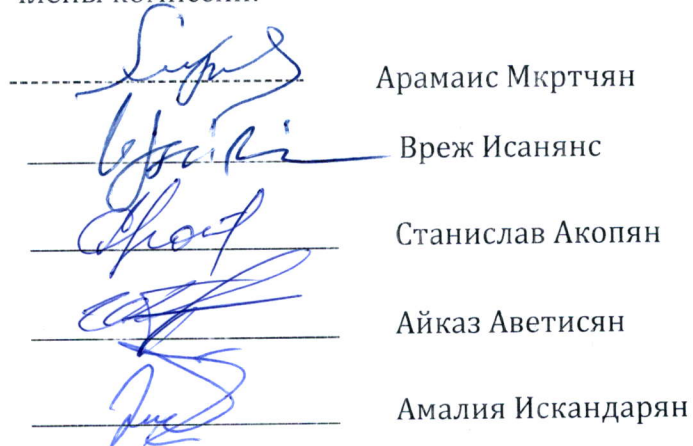 члены комиссии:
Арамаис Мкртчян
Вреж Исанянс
Станислав Акопян
Айказ Аветисян
Амалия Искандарян